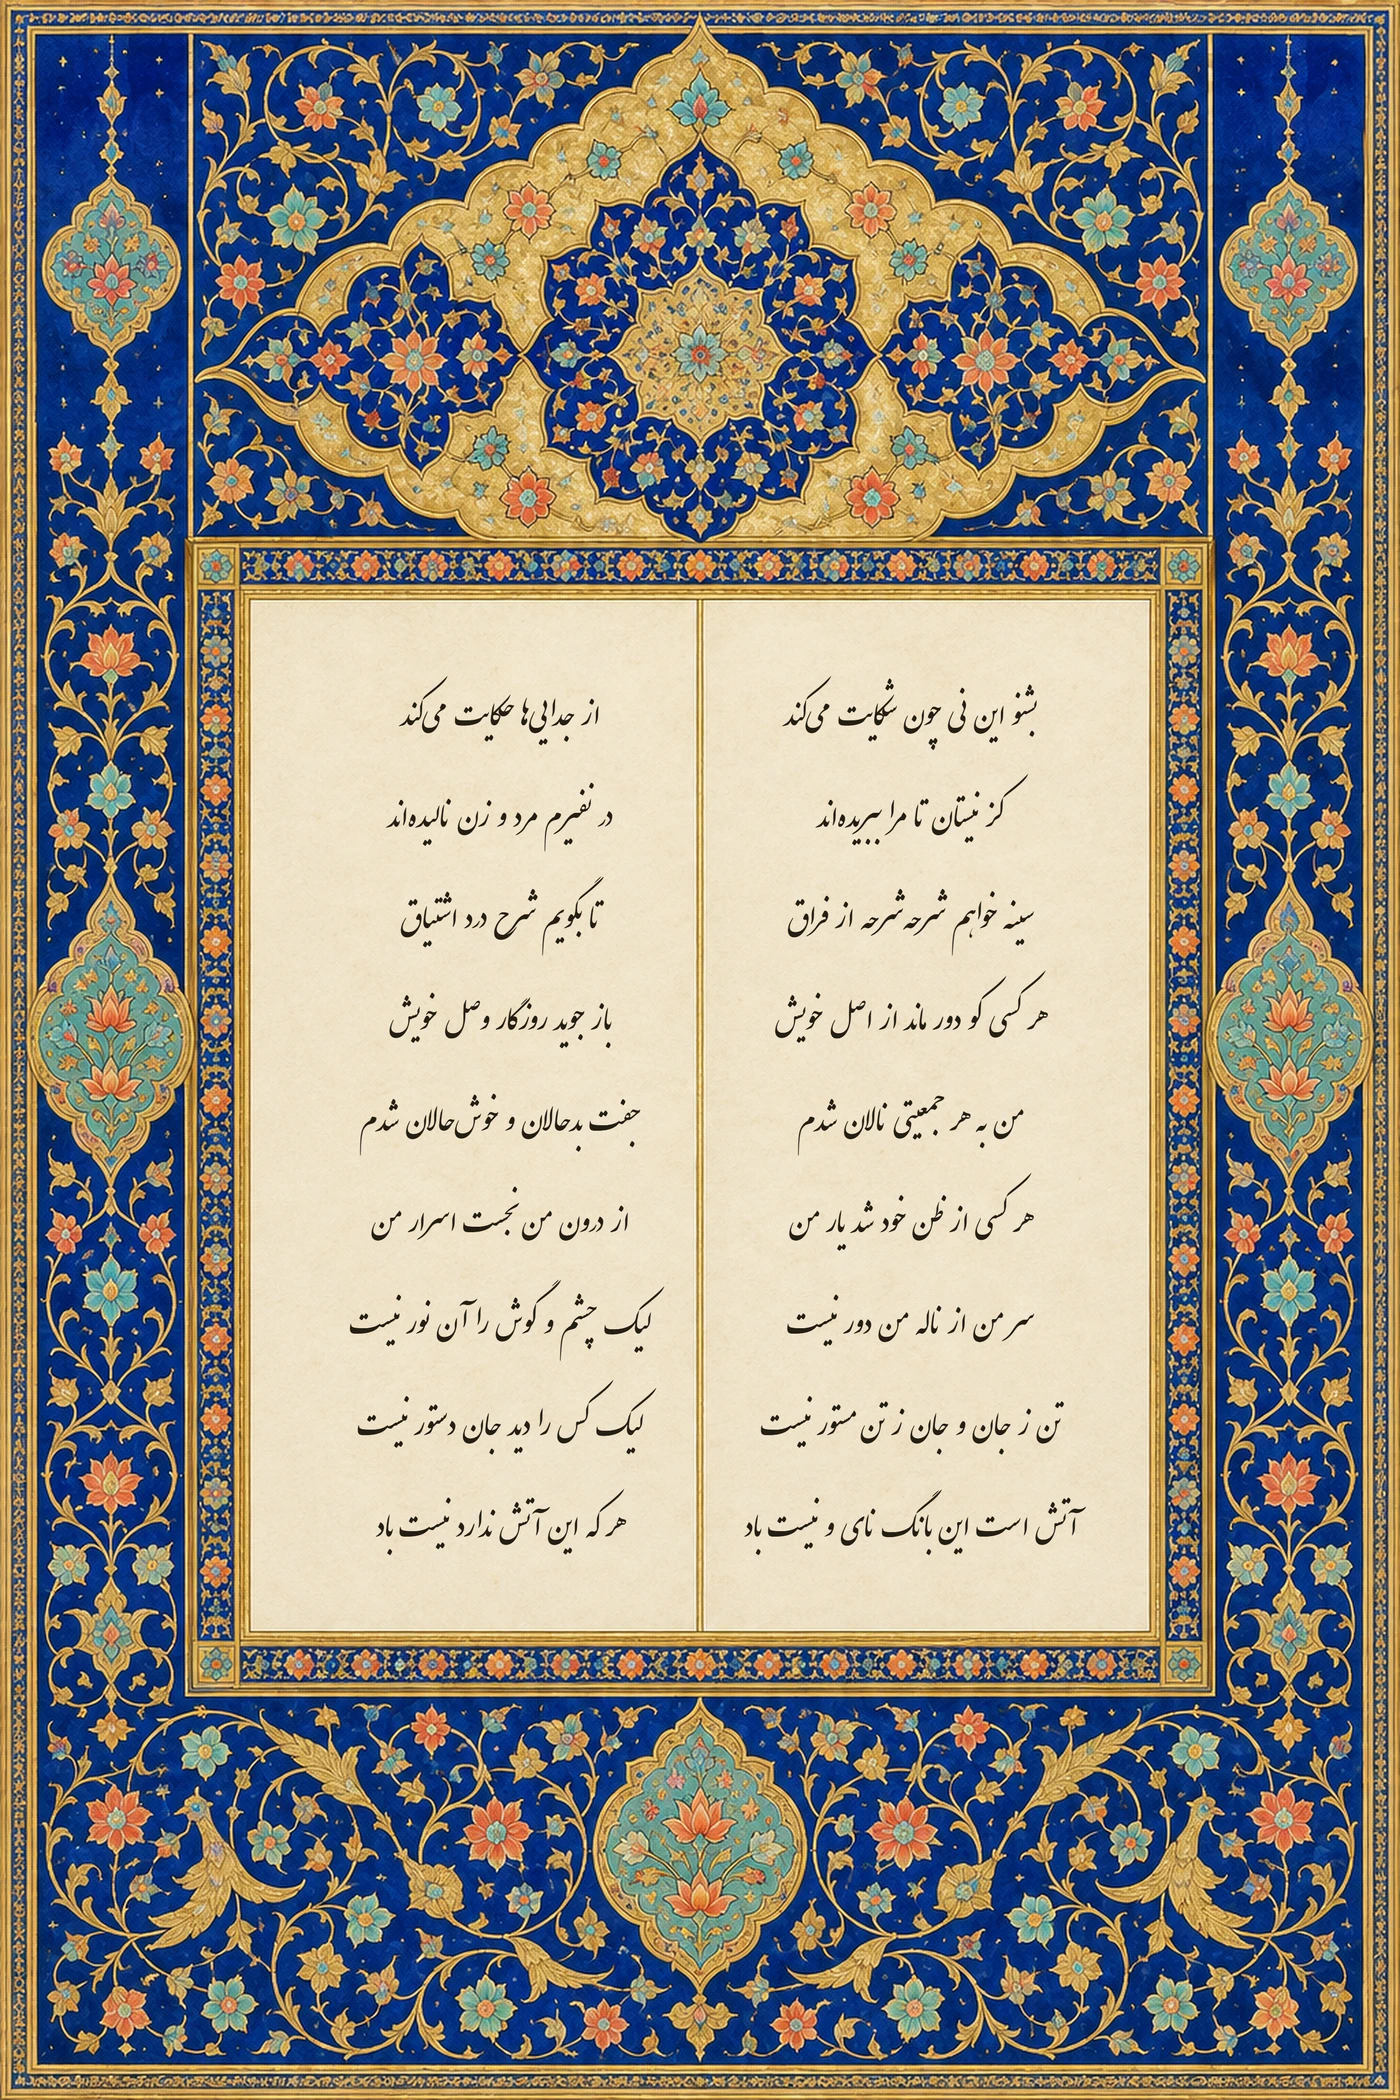 بشنو این نی چون شکایت می‌کند
از جدایی‌ها حکایت می‌کند
کز نیستان تا مرا ببریده‌اند
در نفیرم مرد و زن نالیده‌اند
سینه خواهم شرحه شرحه از فراق
تا بگویم شرح درد اشتیاق
هر کسی کو دور ماند از اصل خویش
باز جوید روزگار وصل خویش
من به هر جمعیتی نالان شدم
جفت بدحالان و خوش‌حالان شدم
هر کسی از ظن خود شد یار من
از درون من نجست اسرار من
سر من از ناله من دور نیست
لیک چشم و گوش را آن نور نیست
تن ز جان و جان ز تن مستور نیست
لیک کس را دید جان دستور نیست
آتش است این بانگ نای و نیست باد
هر که این آتش ندارد نیست باد